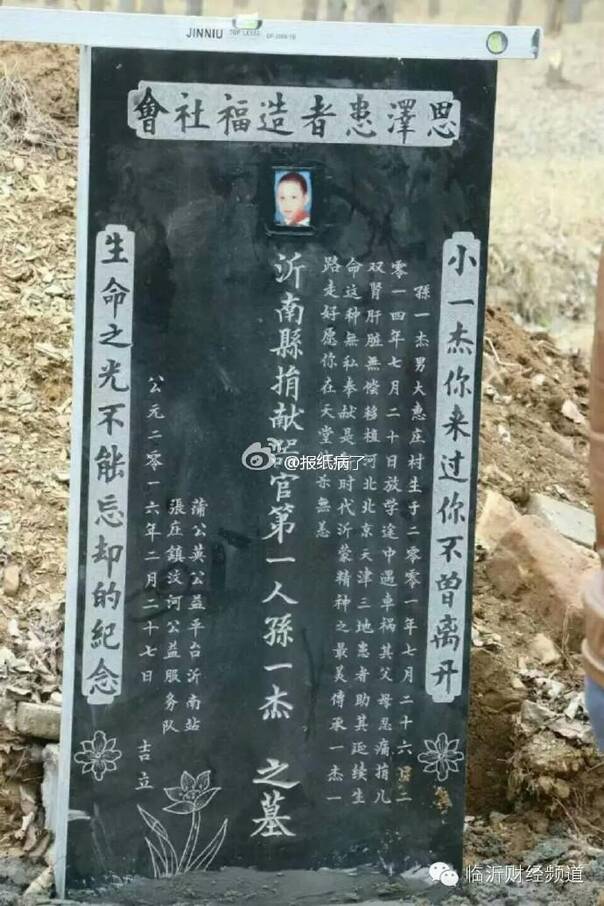 JINNIU
思澤患者造福社會
小一杰你来过你不曾离开
孫一杰男大惠庄村生于二零零一年七月二十六日二
零一四年七月二十日放学途中遇車祸其父母忍痛捐儿
双肾肝脏無偿移植河北北京天津三地患者助其延续生
命这种無私奉献是时代沂蒙精神之最美傳承一杰一
路走好愿你在天堂亦無恙
沂南縣捐献器官第一人孫一杰 之墓
蒲公英公益平台沂南站
張庄鎮汶河公益服务队
公元二零一六年二月二十七日 吉立
生命之光不能忘却的紀念
@报纸病了
临沂财经频道